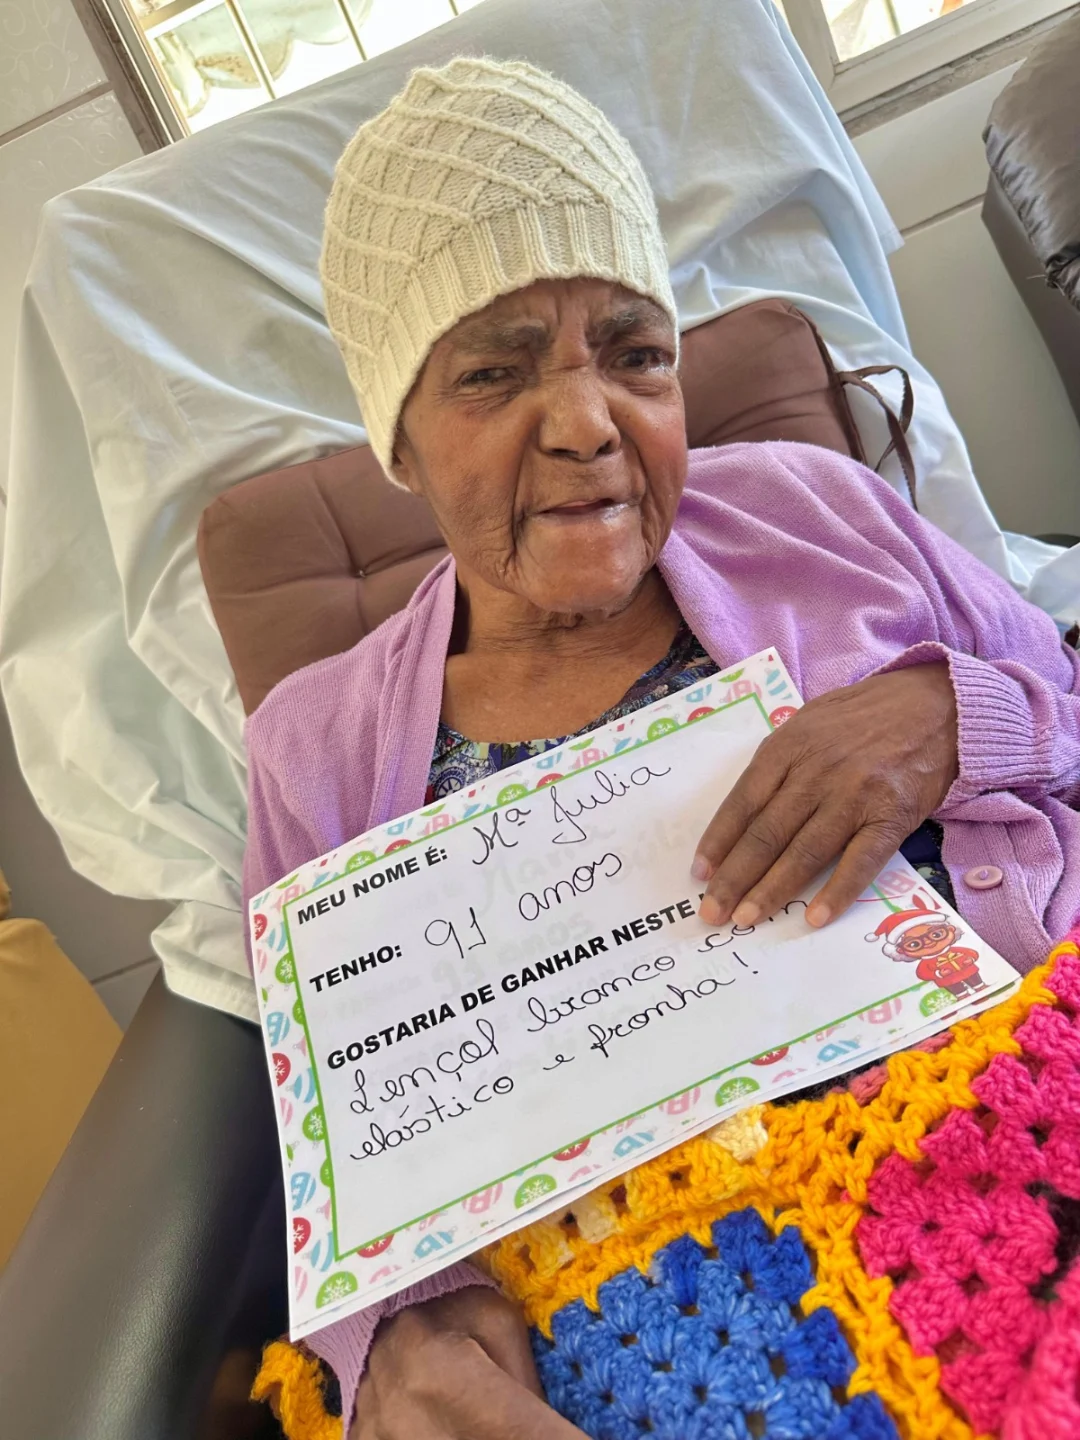 MEU NOME É: Mª Julia
TENHO: 91 anos
GOSTARIA DE GANHAR NESTE
Lençol branco com
elástico e fronha!